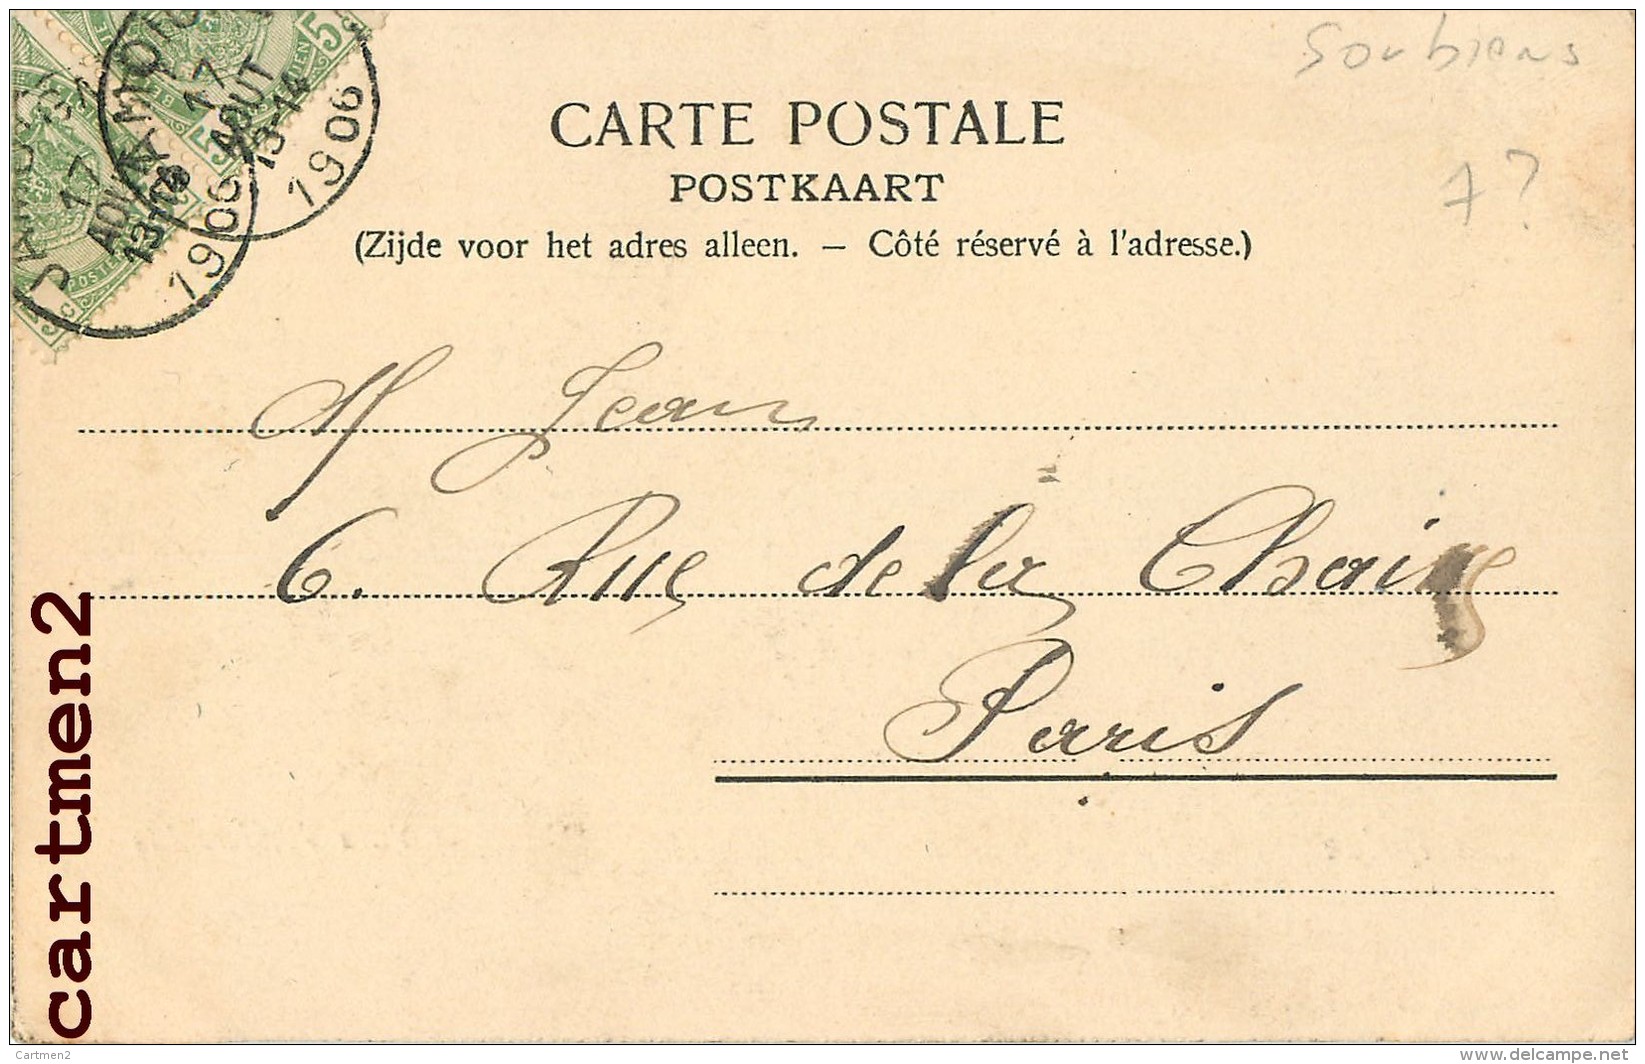 Sorbiens
7?
17
AOUT
13-14
1906
17
1906
CARTE POSTALE
POSTKAART
(Zijde voor het adres alleen. – Côté réservé à l'adresse.)
M Jean
6. Rue de la Chaise
Paris
cartmen2
Cartmen2
www.delcampe.net